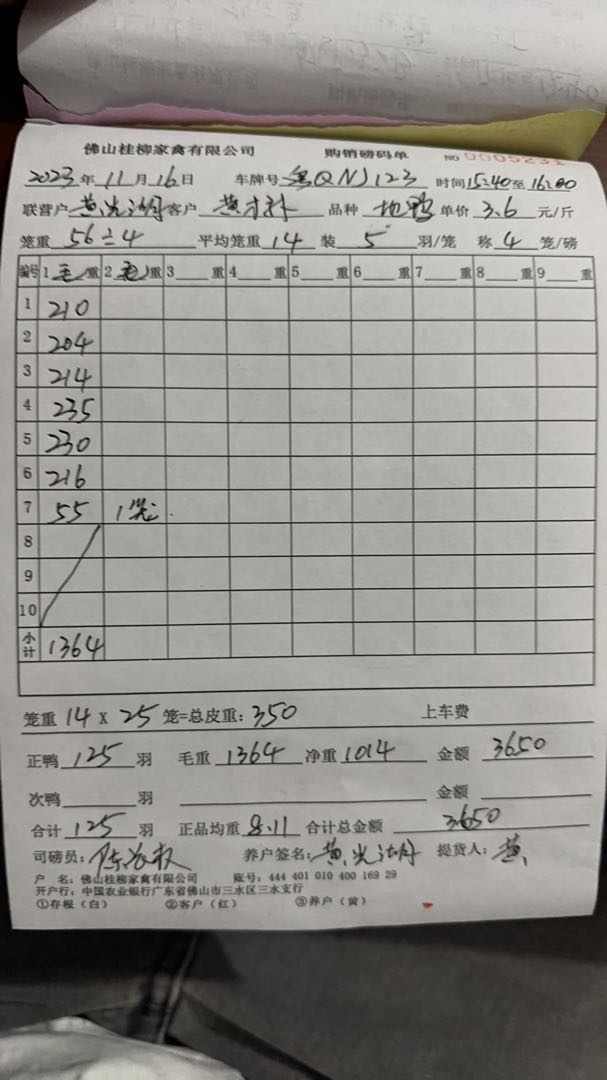 佛山桂柳家禽有限公司 购销磅码单 NO 0005231
2023年11月16日 车牌号 粤QNJ123 时间15:40至16:00
联营户 黄 客户 黄才 品种 地鸭 单价 3.6 元/斤
笼重 56÷4 平均笼重 14 装 5 羽/笼 称 4 笼/磅
编号 1 毛 重 2 毛 重 3 重 4 重 5 重 6 重 7 重 8 重 9 重
1 210
2 204
3 214
4 235
5 230
6 216
7 55 1笼.
8
9
10
小计 1364
笼重 14 X 25 笼=总皮重: 350 上车费
正鸭 125 羽 毛重 1364 净重 1014 金额 3650
次鸭 羽 金额
合计 125 羽 正品均重 8.11 合计总金额 3650
司磅员: 陈 权 养户签名: 黄 提货人: 黄
户 名: 佛山桂柳家禽有限公司 账号: 444 401 010 400 169 29
开户行: 中国农业银行广东省佛山市三水区三水支行
①存根（白） ②客户（红） ③养户（黄）